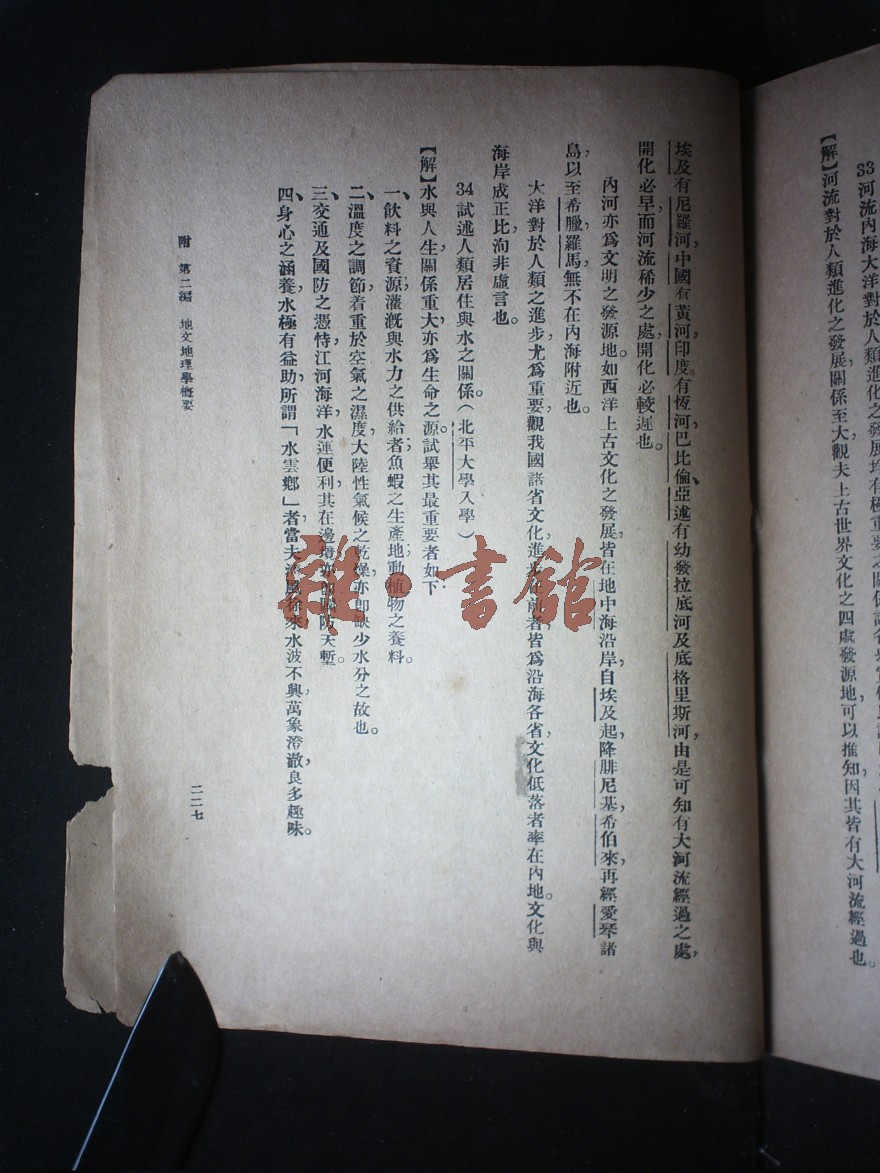 33 河流內海大洋對於人類進化之發展均有極重要之關係
【解】河流對於人類進化之發展關係至大觀夫上古世界文化之四處發源地可以推知因其皆有大河流經過也。
埃及有尼羅河，中國有黃河，印度有恆河，巴比倫、亞述有幼發拉底河及底格里斯河，由是可知有大河流經過之處，
開化必早，而河流稀少之處，開化必較遲也。
內河亦爲文明之發源地。如西洋上古文化之發展，皆在地中海沿岸，自埃及起，降腓尼基，希伯來，再經愛琴諸
島，以至希臘，羅馬，無不在內海附近也。
大洋對於人類之進步，尤爲重要，觀我國諸省文化，進步在前者，皆爲沿海各省，文化低落者，率在內地。文化與
海岸成正比，洵非虛言也。
34 試述人類居住與水之關係。（北平大學入學）
【解】水與人生，關係重大，亦爲生命之源。試舉其最重要者如下：
一、飲料之資源，灌溉與水力之供給者；魚蝦之生產地；動植物之養料。
二、溫度之調節，着重於空氣之濕度，大陸性氣候之乾燥，亦卽缺少水分之故也。
三、交通及國防之憑恃，江河海洋，水運便利，其在邊境，亦國防天塹。
四、身心之涵養，水極有益助，所謂「水雲鄉」者，當夫清風徐來，水波不興，萬象澄澈，良多趣味。
附 第二編 地文地理學概要
二二七
雜·書館